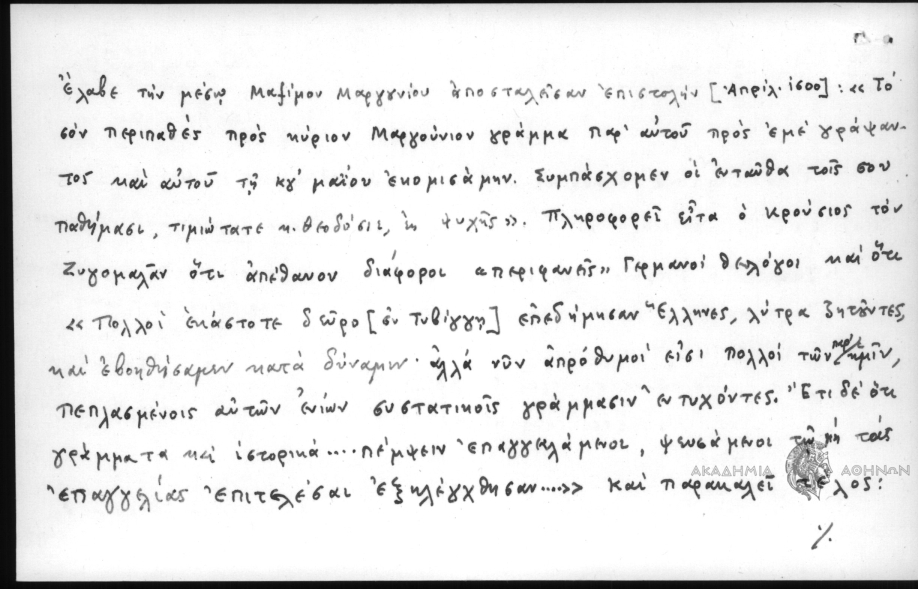 Ἔλαβε τὴν μέσῳ Μαξίμου Μαργουνίου ἀποσταλεῖσαν ἐπιστολὴν [Ἀπρίλ. 1500]: «Τό
σόν περιπαθές πρός κύριον Μαργούνιον γράμμα παρ' αὐτοῦ πρός ἐμέ γράψαν-
τος καί αὐτοῦ τῇ κγ' μαΐου ἐκομισάμην. Συμπάσχομεν οἱ ἐνταῦθα τοῖς σου
παθήμασι, τιμιώτατε κ. Θεοδόσιε, ἐκ ψυχῆς». Πληροφορεῖ εἶτα ὁ Κρούσιος τόν
Ζυγομαλᾶν ὅτι ἀπέθανον διάφοροι «περιφανεῖς» Γερμανοί θεολόγοι καί ὅτι
«Πολλοί ἑκάστοτε δεῦρο [ἐν Τυβίγγῃ] ἐπεδήμησαν Ἕλληνες, λύτρα ζητοῦντες,
καί ἐβοηθήσαμεν κατά δύναμιν· ἀλλά νῦν ἀπρόθυμοί εἰσι πολλοί τῶν παρ' ἡμῖν,
πεπλασμένοις αὐτῶν ἐνίων συστατικοῖς γράμμασιν ἐντυχόντες. Ἔτι δέ ὅτι
γράμματα καί ἱστορικά.... πέμψειν ἐπαγγειλάμενοι, ψευσάμενοι τῷ μή τάς
ἐπαγγελίας ἐπιτελέσαι ἐξηλέγχθησαν....» Καί παρακαλεῖ τέλος:
./.
ΑΚΑΔΗΜΙΑ ΑΘΗΝΩΝ